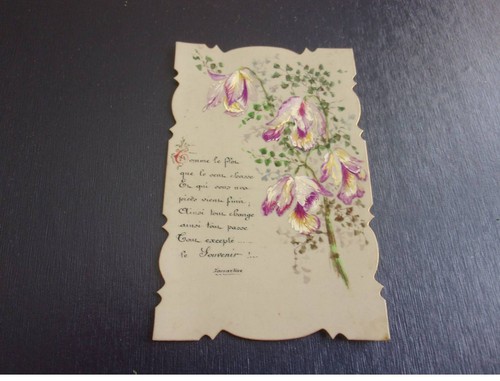 Comme la fleur
que le vent chasse
Et qui sous nos
pieds vient finir,
Ainsi tout change
ainsi tout passe
Tout excepté
le Souvenir !...